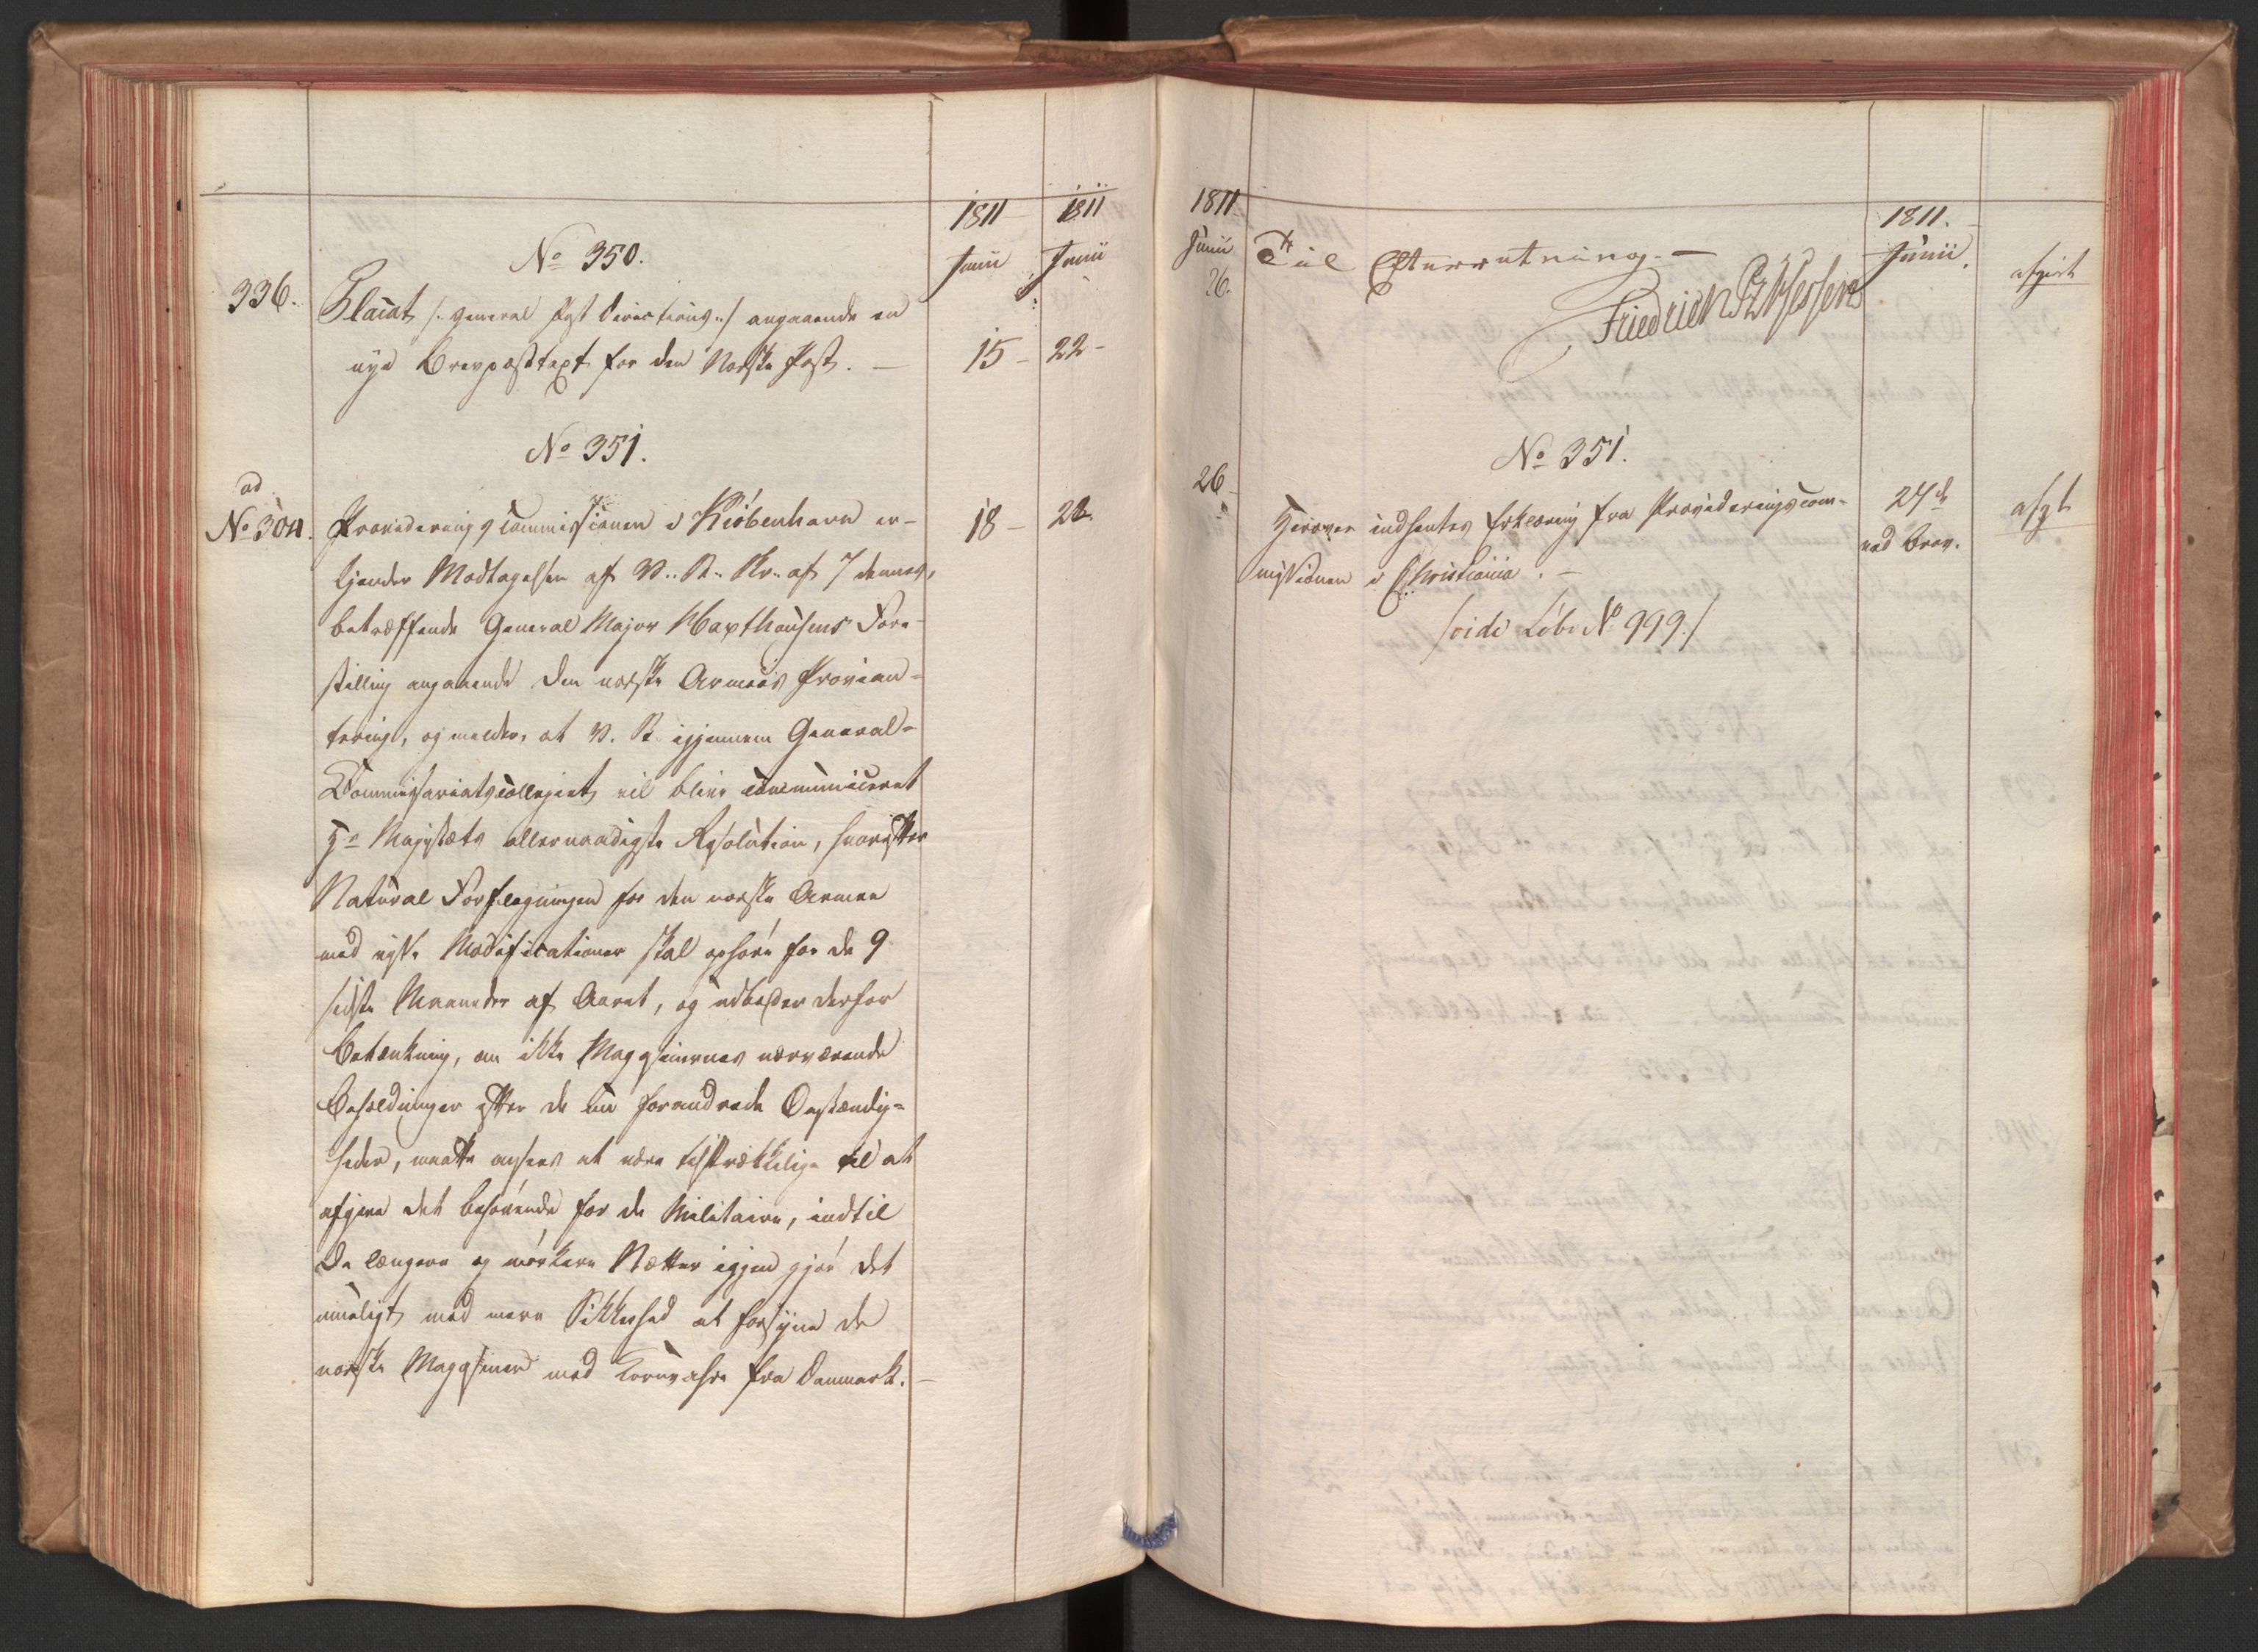 1811 1811
Junii Junii
No 350.
336. Placat /: General Post Directions :/ angaaende en
nye Brevposttaxt for den Norske Post. — 15 – 22 –
No 351.
ad
No 304. Provideringscommissionen i Kiöbenhavn er-
kjender Modtagelsen af V.. R.. Skr.. af 7 dennes, 18 – 22.
betræffende General Major Haxthausens Fore-
stilling angaaende den norske Armees Provian-
tering, og melder, at V. R. igjennem General-
Commissariatscollegiet vil blive communiceret
Hs Majestæts allernaadigste Resolution, hvorefter
Natural Forflegningen for den norske Armee
med visse Modificationer skal ophöre for de 9
sidste Maaneder af Aaret, og udbeder derfor
Betænkning, om ikke Magasinernes nærværende
Beholdninger efter de nu forandrede Omstændig-
heder, maatte ansees at være tilstrækkelige til at
afgive det behövende for de Militaire, indtil
de længere og mörkere Nætter igjen gjör det
mueligt med mere Sikkerhed at forsyne de
norske Magasiner med Kornvahre fra Danmark. —
1811 1811.
Junii Junii.
26. Til Efterretning. — afgjort
Friedrich PzHessen
No 351.
26 – Herover indhentes Erklæring fra Provideringscom- 27de afgt
missionen i Christiania. — ved Brev.
/vide Löbe No 999./